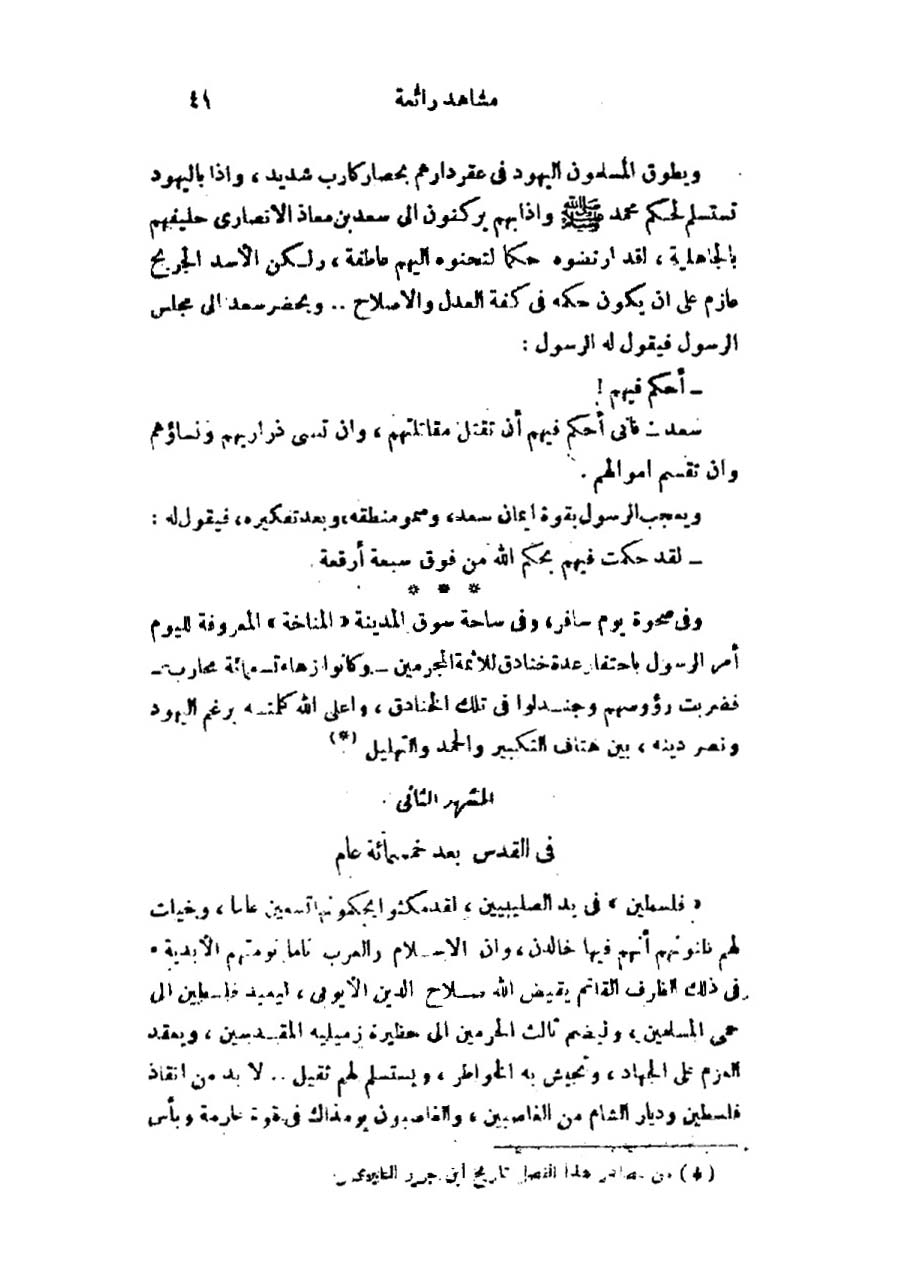 مشاهد رائعة ٤١
ويطوق المسلمون اليهود فى عقر دارهم بحصار كارب شديد ، واذا باليهود
تستسلم لحكم محمد ﷺ واذا بهم يركنون الى سعد بن معاذ الانصارى حليفهم
بالجاهلية ، لقد ارتضوه حكما لتحنوه اليهم عاطفة ، ولكن الأسد الجريح
عازم على ان يكون حكمه فى كفة العدل والاصلاح .. ويحضر سعد الى مجلس
الرسول فيقول له الرسول :
ــ أحكم فيهم !
سعد ــ فأنى أحكم فيهم أن تقتل مقاتلتهم ، وان تسبى ذراريهم ونساؤهم
وان تقسم اموالهم .
ويعجب الرسول بقوة ايمان سعد، وسمو منطقه، وبعد تفكيره، فيقول له :
ــ لقد حكمت فيهم بحكم الله من فوق سبعة أرقعة .
* * *
وفى صحوة يوم سافر، وفى ساحة سوق المدينة « المناخة » المعروفة لليوم
أمر الرسول باحتفار عدة خنادق للائمة المجرمين ــ وكانوا زهاء تسعمائة محارب ــ
فضربت رؤوسهم وجندلوا فى تلك الخنادق ، واعلى الله كلمته برغم اليهود
ونصر دينه ، بين هتاف التكبير والحمد والتهليل (*)
المشهد الثانى .
فى القدس بعد خمسمائة عام
« فلسطين » فى يد الصليبيين ، لقد مكثوا يحكمونها تسعين عاما ، وخيات
لهم نانونهم أنهم فيها خالدن ، وان الاسلام والعرب ناما نومتهم الأبدية .
فى ذلك الظرف القاتم يقيض الله صلاح الدين الأيوبى ، ليعيد فلسطين الى
حمى المسلمين ، وليضم ثالث الحرمين الى حظيرة زميليه المقدسين ، ويعقد
العزم على الجهاد ، وتجيش به الخواطر ، ويستسلم لهم ثقيل .. لا بد من انقاذ
فلسطين وديار الشام من الغاصبين ، والغاصبون يومذاك فى قوة عارمة وبأس
(*) من مصادر هذا الفصل تاريخ أبن جرير